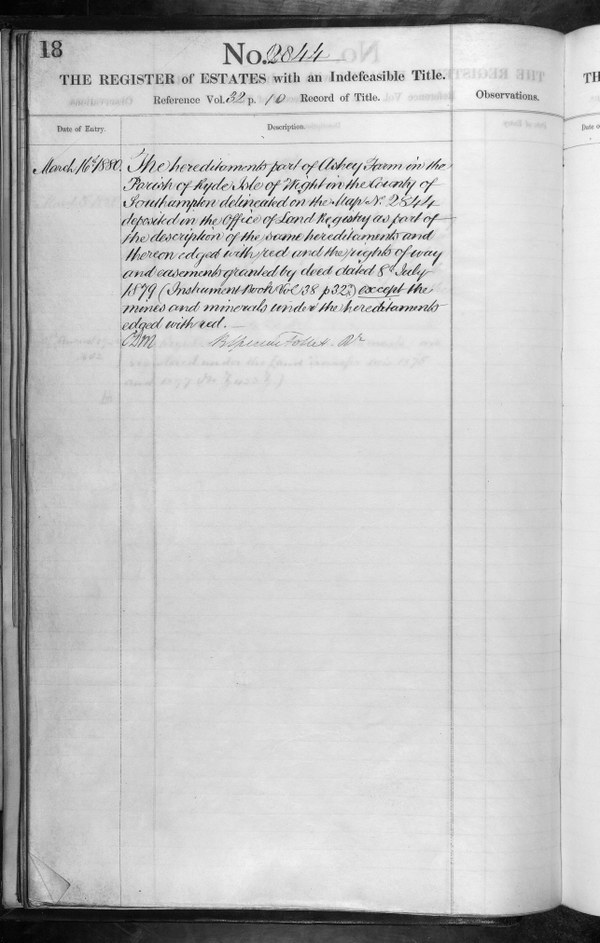 18
No. 2844
THE REGISTER of ESTATES with an Indefeasible Title.
Reference Vol. 32 p. 10 Record of Title.
Observations.
Date of Entry.
Description.
March 16th 1880.
The hereditaments part of Ashey Farm in the
Parish of Ryde Isle of Wight in the County of
Southampton delineated on the Map No. 2844
deposited in the Office of Land Registry as part of
the description of the same hereditaments and
thereon edged with red and the rights of way
and easements granted by deed dated 8th July
1879 (Instrument Book Vol 38 p 322) except the
mines and minerals under the hereditaments
edged with red.